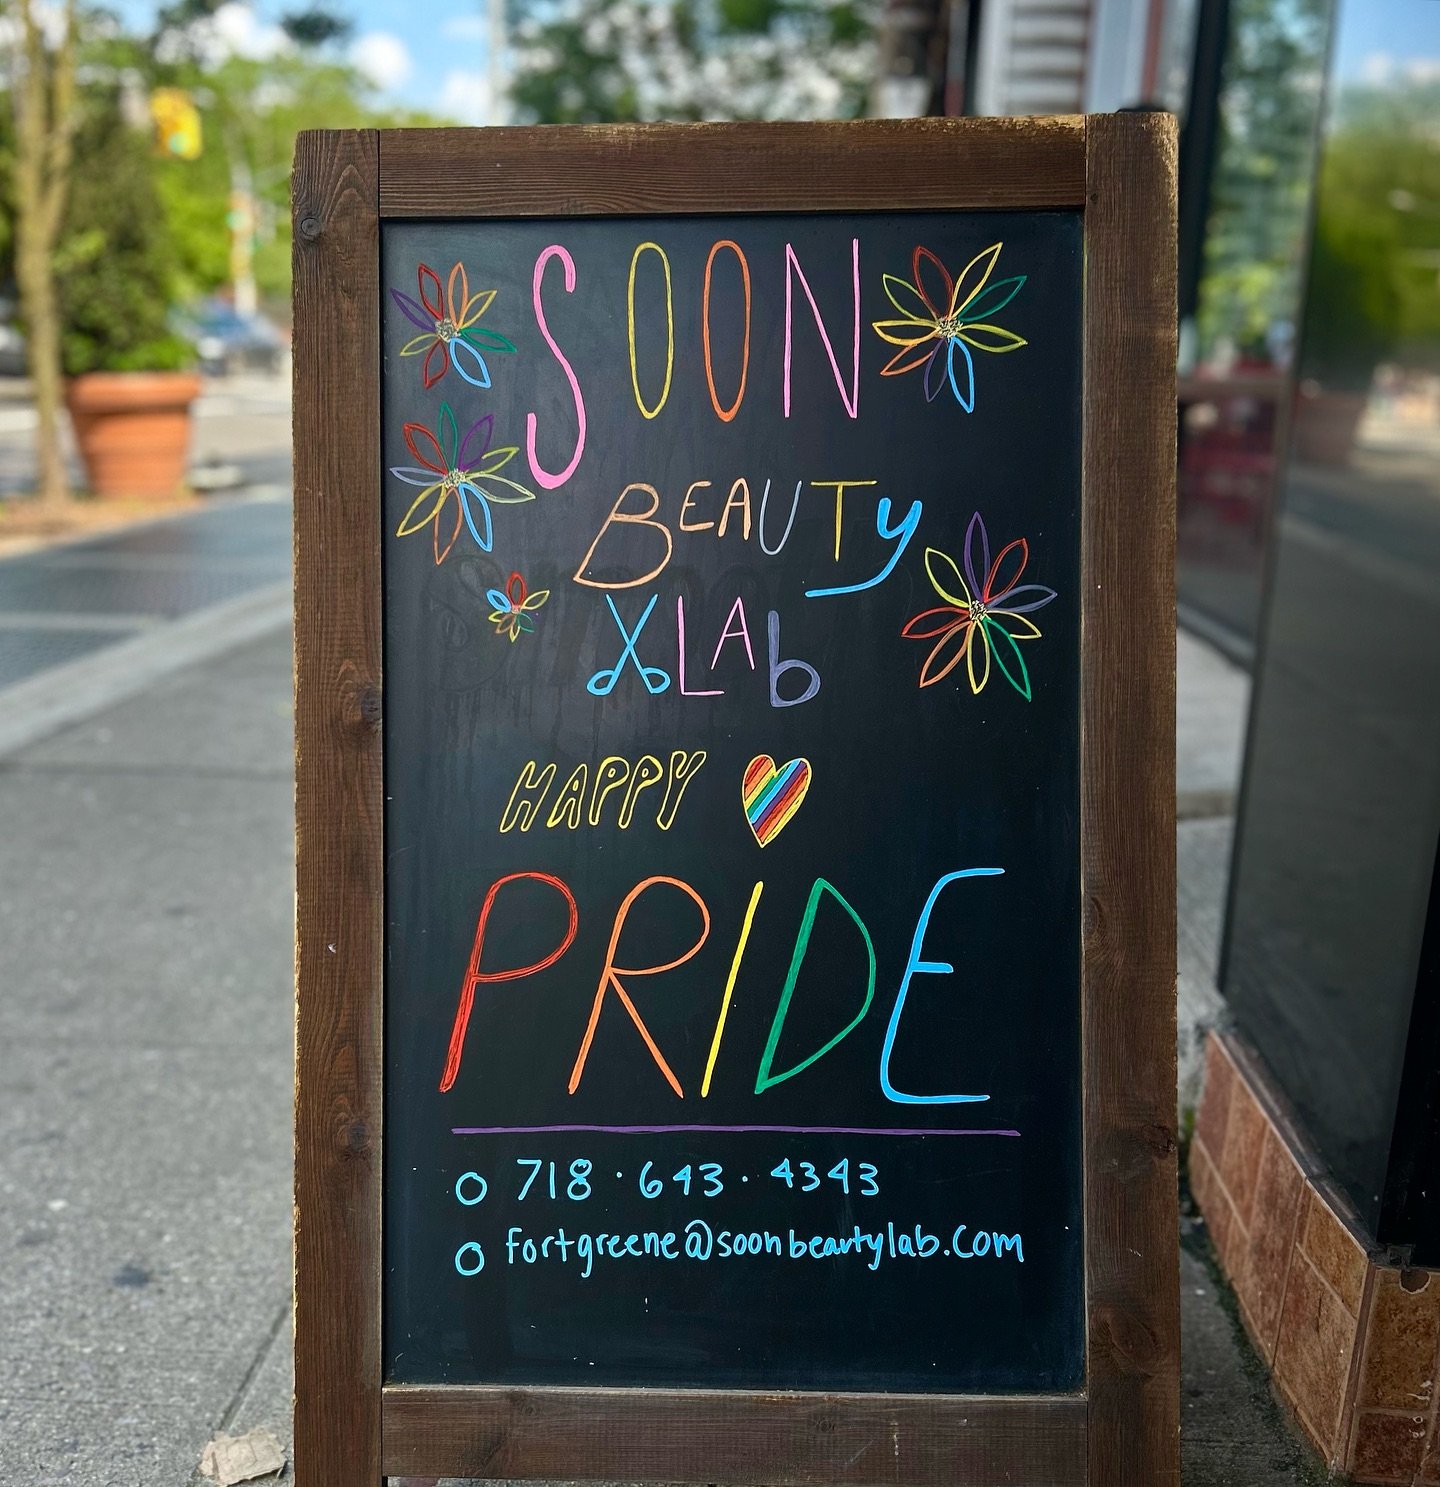 SOON
BEAUTY
LAb
HAPPY
PRIDE
718·643·4343
fortgreene@soonbeautylab.com